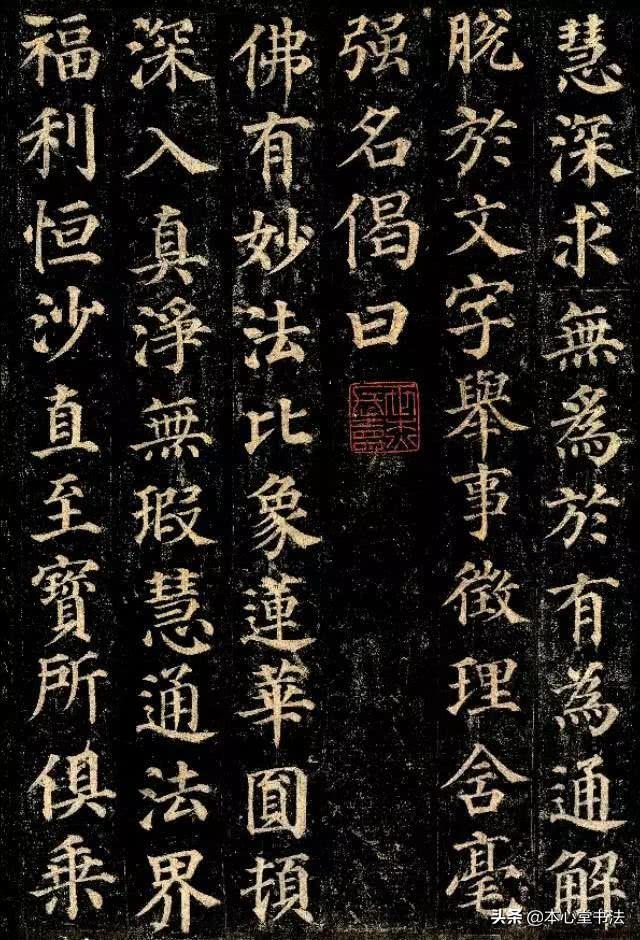 慧深求無爲於有為通解
脱於文字舉事徵理含毫
强名偈曰
佛有妙法比象蓮華圓頓
深入真淨無瑕慧通法界
福利恒沙直至寶所俱乘
头条 @本心堂书法